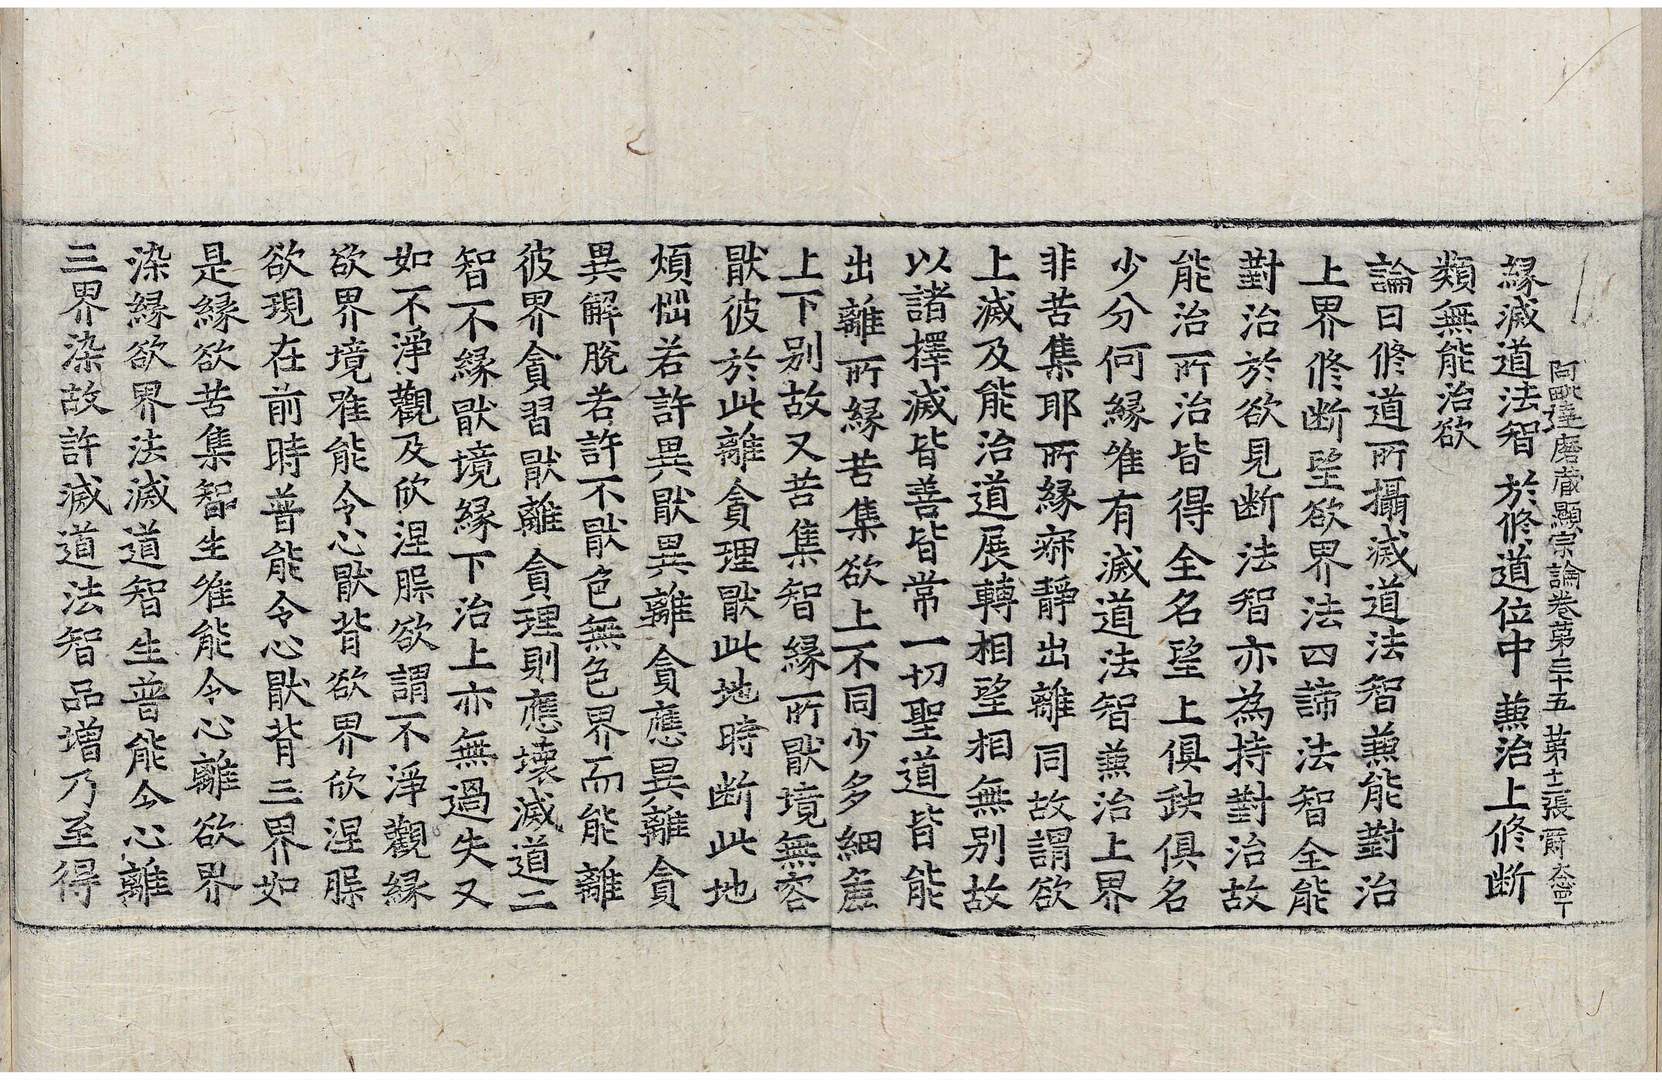 阿毗達磨藏顯宗論卷第三十五 第十二張 爵
緣滅道法智 於修道位中 兼治上修断
類無能治欲
論曰修道所攝滅道法智兼能對治
上界修断望欲界法四諦法智全能
對治於欲見断法智亦為持對治故
能治所治皆得全名望上俱缺俱名
少分何緣唯有滅道法智兼治上界
非苦集耶所緣寂靜出離同故謂欲
上滅及能治道展轉相望相無别故
以諸擇滅皆善皆常一切聖道皆能
出離所緣苦集欲上不同少多細麁
上下别故又苦集智緣所猒境無容
猒彼於此離貪理猒此地時断此地
煩惱若許異猒異離貪應異離貪
異解脫若許不猒色無色界而能離
彼界貪習猒離貪理則應壞滅道二
智不緣猒境緣下治上亦無過失又
如不淨觀及欣涅槃欲謂不淨觀緣
欲界境唯能令心猒背欲界欣涅槃
欲現在前時普能令心猒背三界如
是緣欲苦集智生唯能令心離欲界
染緣欲界法滅道智生普能令心離
三界染故許滅道法智品增乃至得